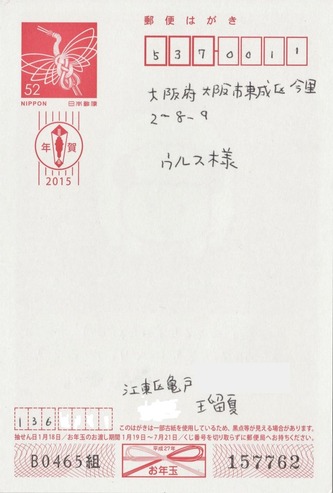 郵便はがき
537-0011
52
NIPPON 日本郵便
年賀
2015
大阪府大阪市東成区今里
2-8-9
ウルス様
江東区亀戸
王留夏
136
このはがきは一部古紙を使用しているため、黒点等が見える場合があります。
抽せん日1月18日/お年玉のお渡し期間1月19日～7月21日/くじ番号を切り取らずに郵便局へお持ちください。
平成27年
お年玉
B0465組
157762